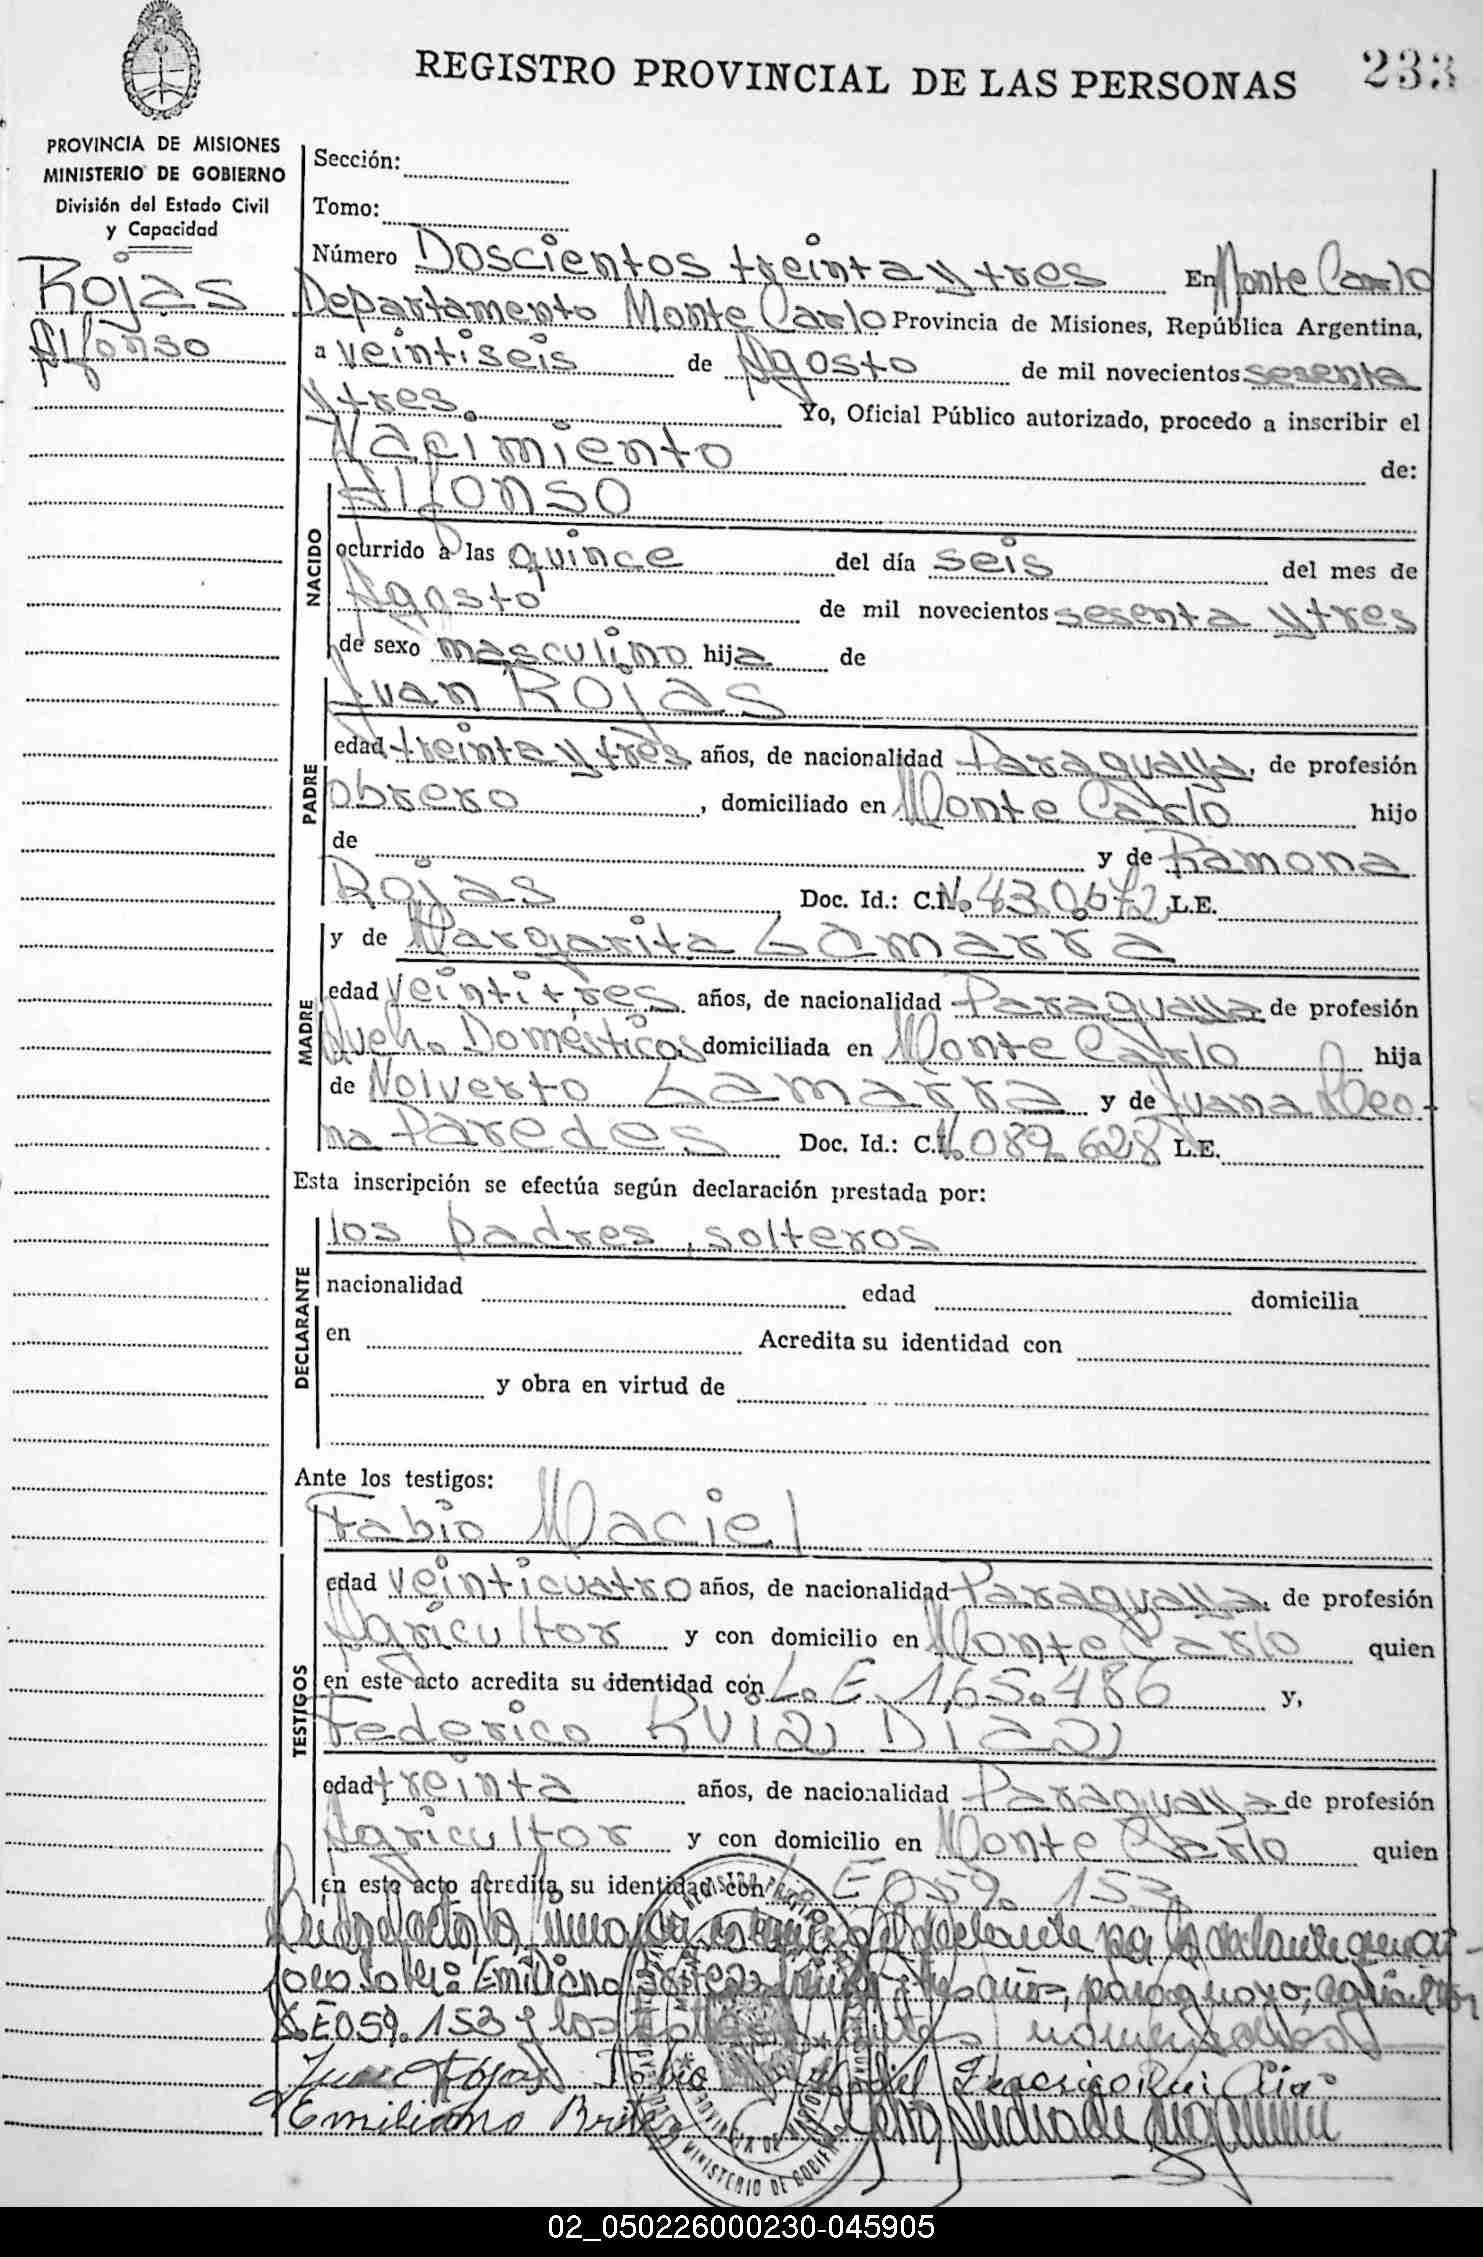 REGISTRO PROVINCIAL DE LAS PERSONAS 233
PROVINCIA DE MISIONES
MINISTERIO DE GOBIERNO
División del Estado Civil
y Capacidad
Rojas
Alfonso
Sección:
Tomo:
Número Doscientos treinta y tres En Monte Carlo
Departamento Monte Carlo Provincia de Misiones, República Argentina,
a veintiseis de Agosto de mil novecientos sesenta
y tres. Yo, Oficial Público autorizado, procedo a inscribir el
Nacimiento de:
NACIDO
Alfonso
ocurrido a las quince del día seis del mes de
Agosto de mil novecientos sesenta y tres
de sexo masculino hija de
PADRE
Juan Rojas
edad treinta y tres años, de nacionalidad Paraguaya, de profesión
obrero, domiciliado en Monte Carlo hijo
de y de Ramona
Rojas Doc. Id.: C.I. No. 430.672 L.E.
MADRE
y de Margarita Lamarra
edad veintitres años, de nacionalidad Paraguaya de profesión
Queh. Domésticos domiciliada en Monte Carlo hija
de Nolverto Lamarra y de Juana
Paredes Doc. Id.: C.I. 089.628 L.E.
Esta inscripción se efectúa según declaración prestada por:
DECLARANTE
los padres, solteros
nacionalidad edad domicilia
en Acredita su identidad con
y obra en virtud de
Ante los testigos:
TESTIGOS
Fabio Maciel
edad veinticuatro años, de nacionalidad Paraguaya, de profesión
Agricultor y con domicilio en Monte Carlo quien
en este acto acredita su identidad con L.E. 165.486 y,
Federico Ruiz Diaz
edad treinta años, de nacionalidad Paraguaya de profesión
Agricultor y con domicilio en Monte Carlo quien
en este acto acredita su identidad con L E 059. 153
Emiliano años, paraguayo, agricultor,
L.E 059. 153 y los
Juan Rojas Fabio Maciel Federico Rui Dia
Emiliano Britez
MINISTERIO DE GOBIERNO
02_050226000230-045905